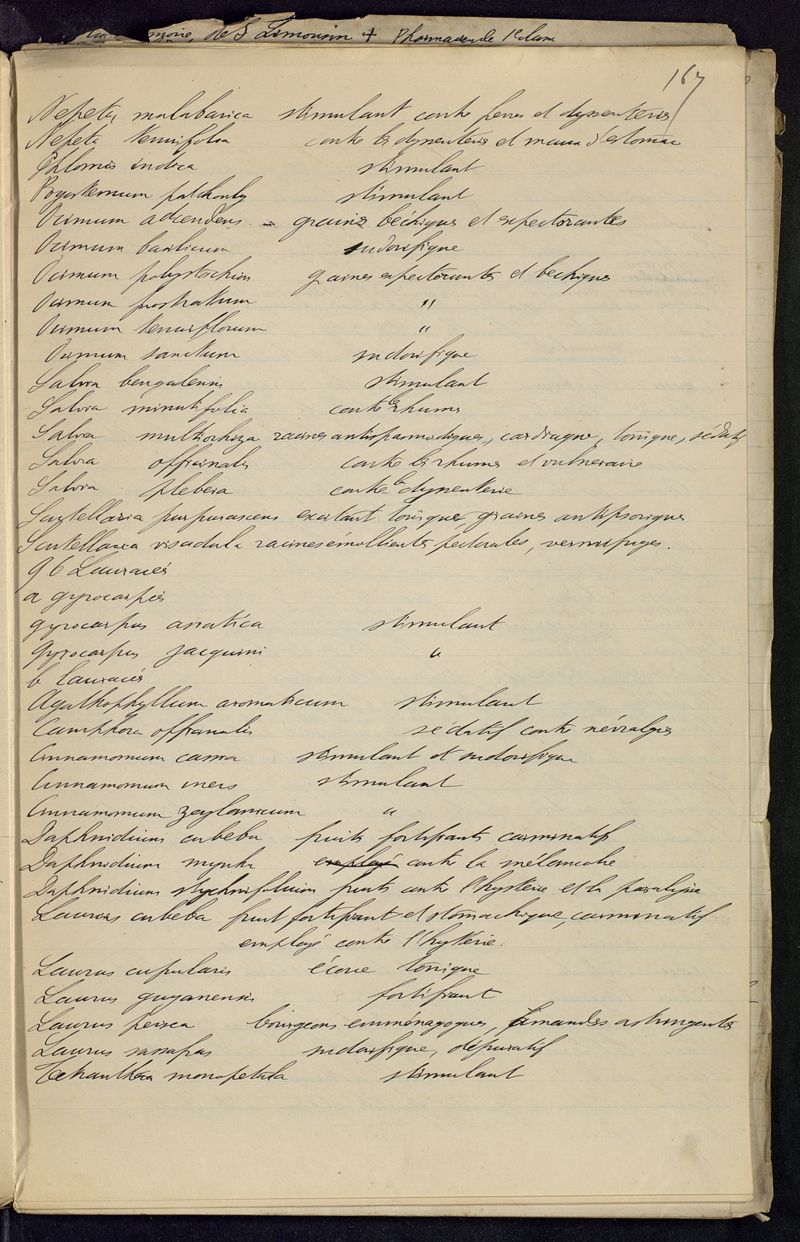 de S Limousin + Pharmacien de 1e classe
167
Nepeta malabarica stimulant contre fievres et dysenteries
Nepeta tenuifolia contre les dysenteries et maux d'estomac
Phlomis indica stimulant
Pogostemum patchouly stimulant
Ocimum adcendens - graines béchiques et expectorantes
Ocimum basilicum sudorifique
Ocimum polystachion graines expectorantes et bechiques
Ocimum prostratum "
Ocimum tenuiflorum "
Ocimum sanctum sudorifique
Salvia bengalensis stimulant
Salvia minutifolia contre les rhumes
Salvia multiorhiza racines antispasmodiques, cardiaque, tonique, sédatif
Salvia officinalis contre les rhumes et vulneraire
Salvia plebeia contre la dysenterie
Scutellaria purpurascens excitant tonique, graines antipsoriques
Scutellaria viscidula racines émollientes, pectorales, vermifuges.
96 Lauracés
a gyrocarpées
gyrocarpus asiatica stimulant
Gyrocarpus jacquini "
b lauracées
Agathophyllum aromaticum stimulant
Camphora officinalis sédatif contre névralgies
Cinnamomum cassia stimulant et sudorifique
Cinnamomum iners stimulant
Cinnamomum zeylanicum "
Daphnidium cubeba fruits fortifiants carminatifs
Daphnidium myrrha employé contre la mélancolie
Daphnidium strychnifolium fruits contre l'hysterie et la paralysie
Laurus cubeba fruit fortifiant et stomachique, carminatif
employé contre l'hystérie.
Laurus cupularis écorce tonique
Laurus guyanensis fortifiant
Laurus persea bourgeons emménagogues, amandes astringentes
Laurus sassafras sudorifique, dépuratif
Tetranthera monopetala stimulant